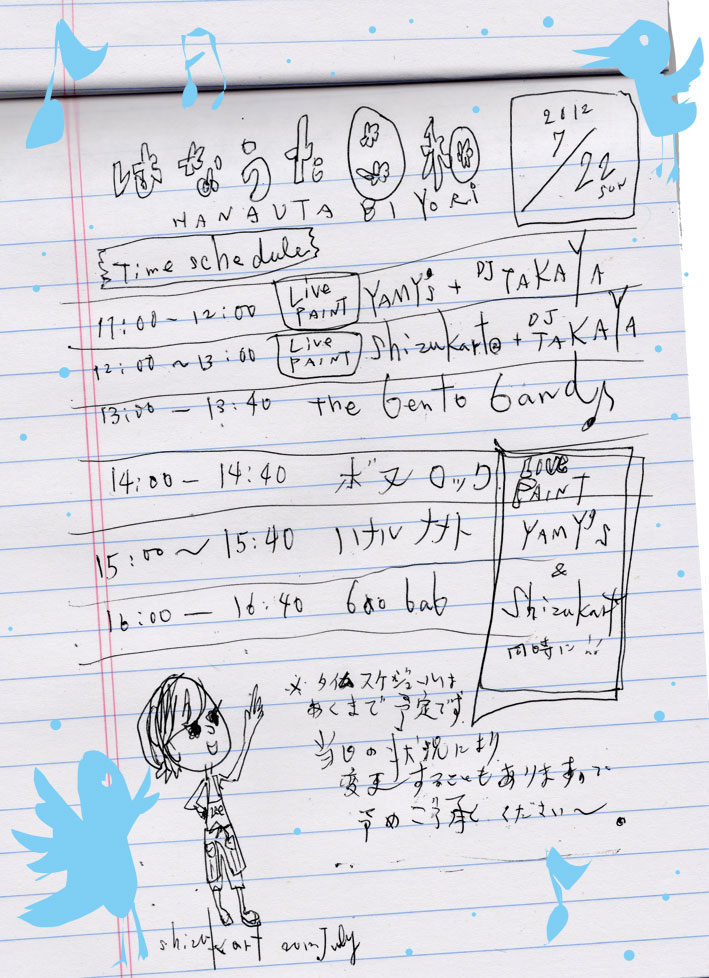 はなうた日和
HANAUTA BIYORI
2012
7/22
SUN
Time schedule
11:00~12:00 Live PAINT YAMY's + DJ TAKAYA
12:00~13:00 Live PAINT Shizukart@ + DJ TAKAYA
13:00-13:40 the bento band♪
14:00-14:40 ボヌ ロック
15:00~15:40 ハナル ナナト
16:00-16:40 bao bab
LIVE
PAINT
YAMY's
&
Shizukart
同時に!!
※タイムスケジュールは
あくまで予定です
当日の状況により
変更することもありますので
予めご了承ください~。
shizukart 2012 July